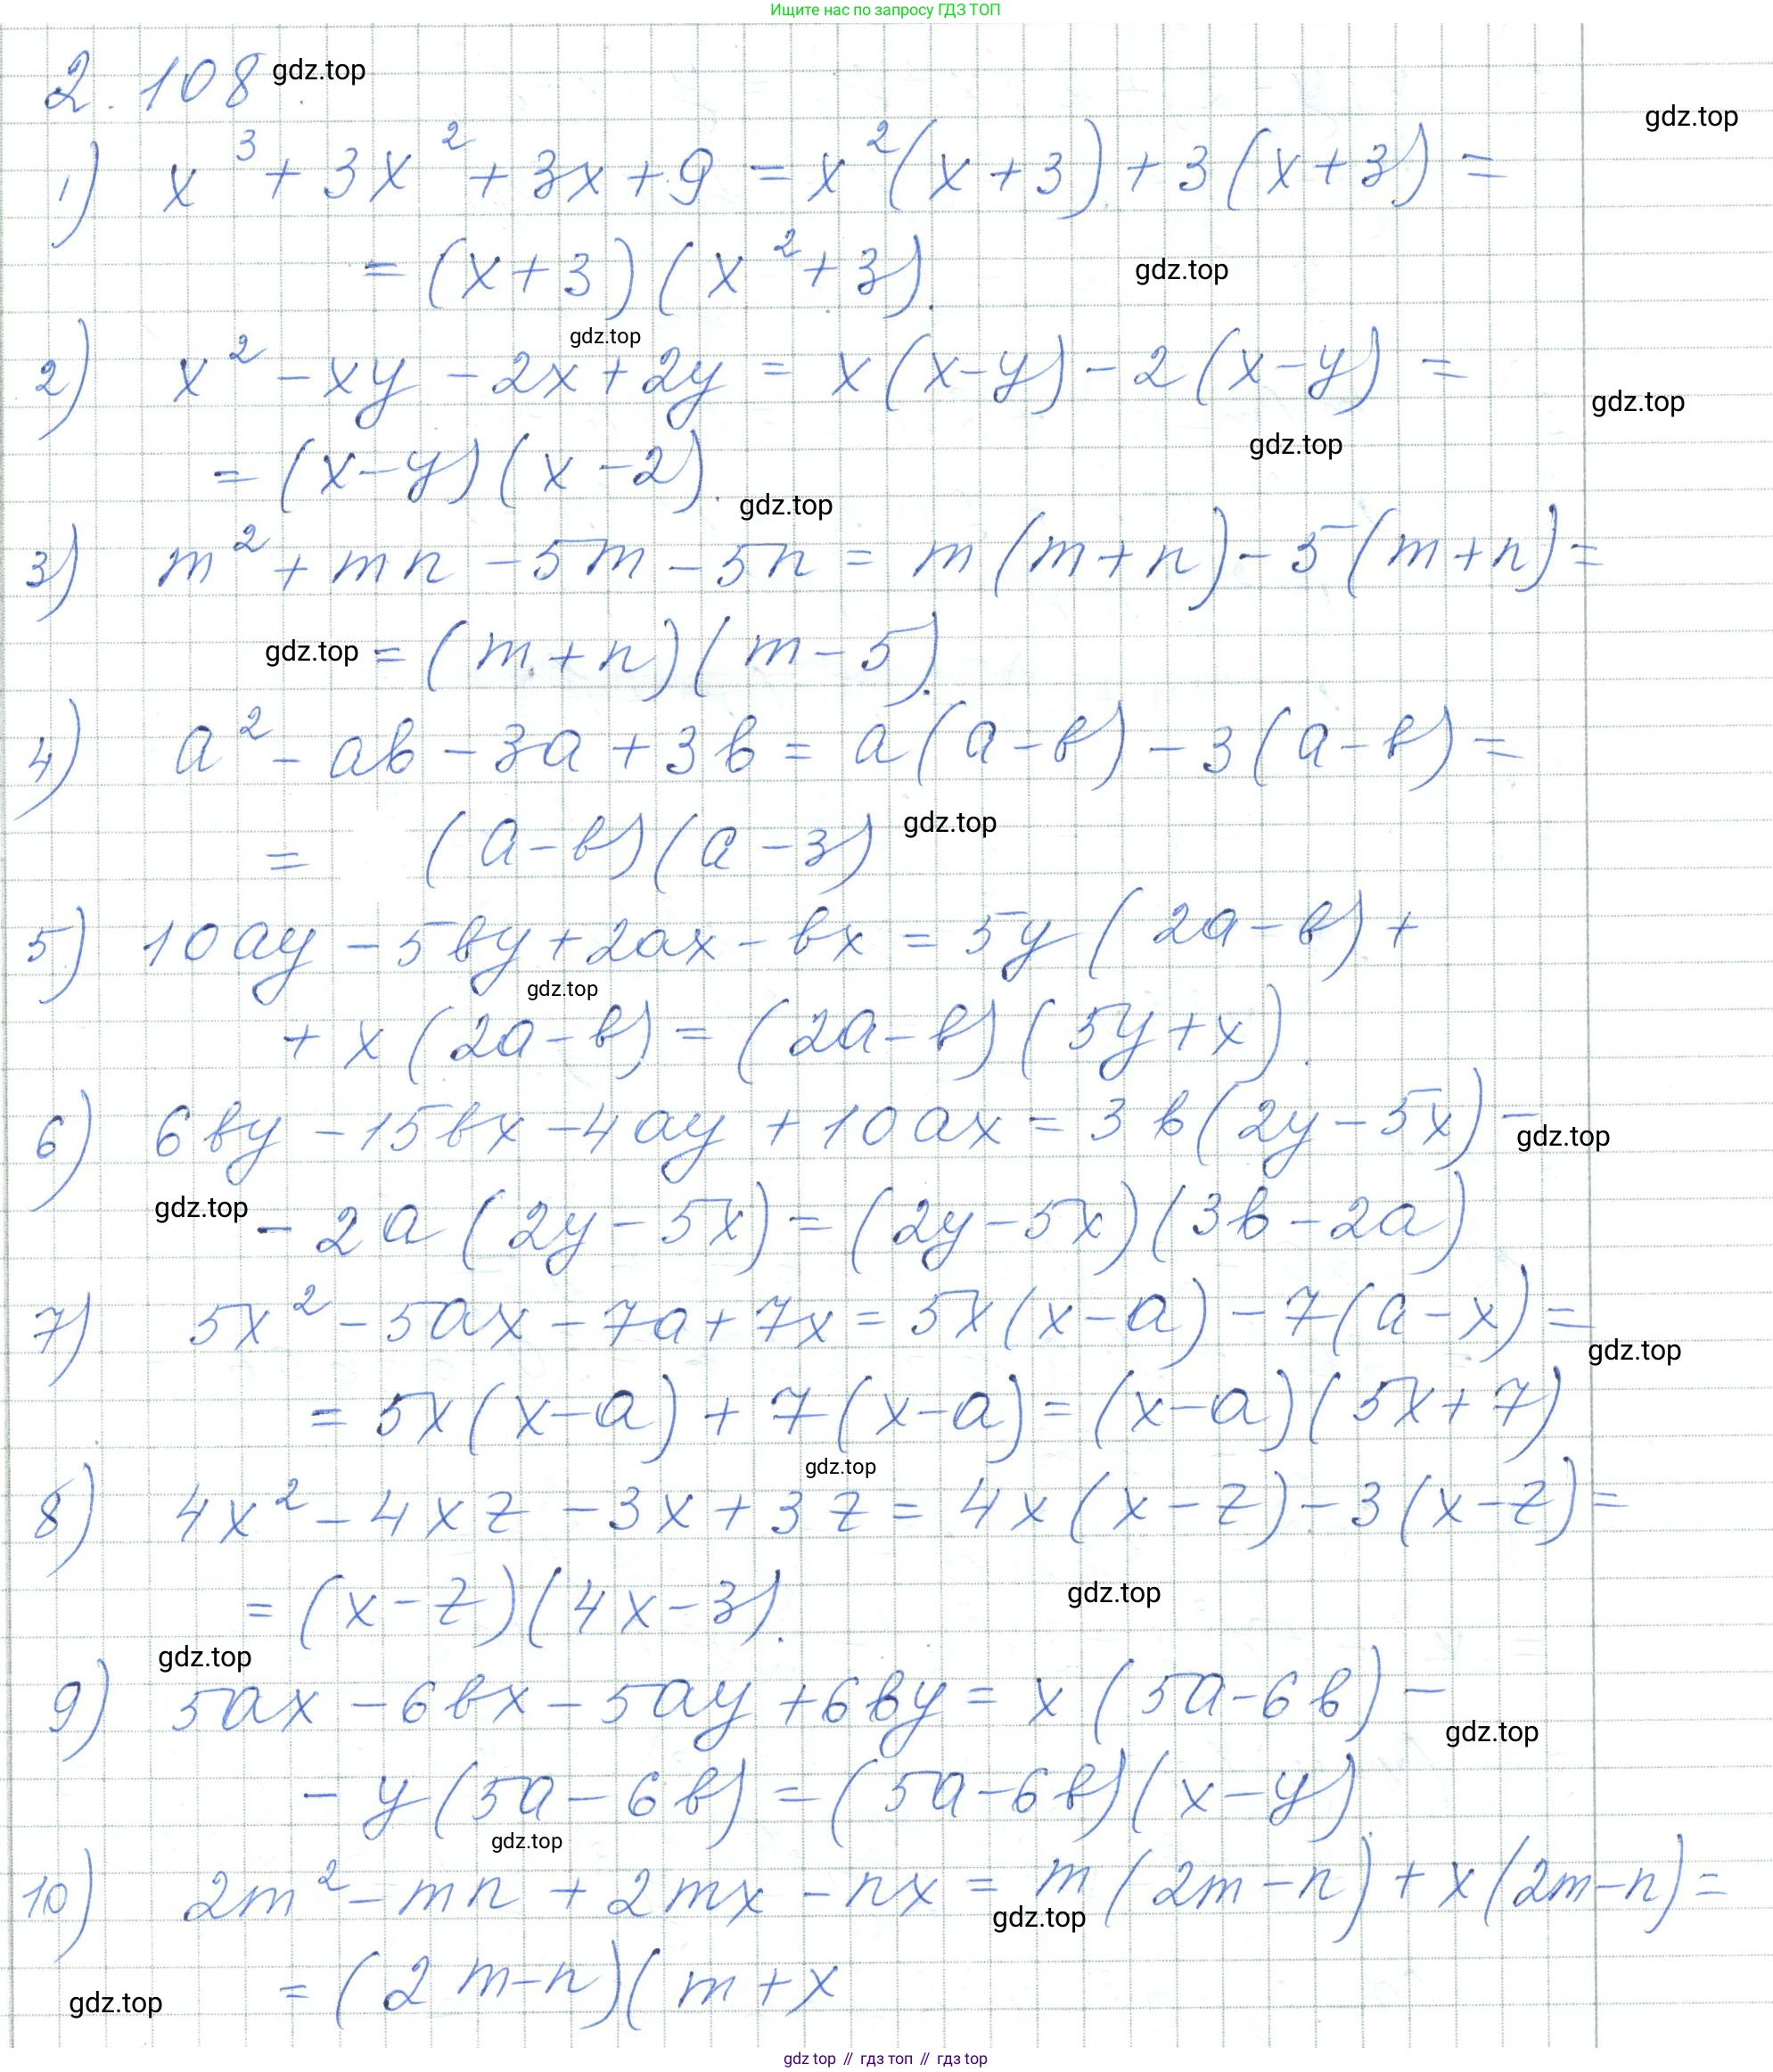 Ищите нас по запросу ГДЗ ТОП
2.108 gdz.top
gdz.top
1) x³ + 3x² + 3x + 9 = x²(x + 3) + 3(x + 3) =
= (x + 3)(x² + 3).
gdz.top
gdz.top
2) x² - xy - 2x + 2y = x(x - y) - 2(x - y) =
gdz.top
gdz.top
= (x - y)(x - 2).
gdz.top
3) m² + mn - 5m - 5n = m(m + n) - 5(m + n) =
gdz.top = (m + n)(m - 5).
4) a² - ab - 3a + 3b = a(a - b) - 3(a - b) =
= (a - b)(a - 3) gdz.top
5) 10ay - 5by + 2ax - bx = 5y(2a - b) +
gdz.top
+ x(2a - b) = (2a - b)(5y + x).
6) 6by - 15bx - 4ay + 10ax = 3b(2y - 5x) -
gdz.top
gdz.top - 2a(2y - 5x) = (2y - 5x)(3b - 2a)
7) 5x² - 5ax - 7a + 7x = 5x(x - a) - 7(a - x) =
gdz.top
= 5x(x - a) + 7(x - a) = (x - a)(5x + 7)
gdz.top
8) 4x² - 4xz - 3x + 3z = 4x(x - z) - 3(x - z) =
= (x - z)(4x - 3).
gdz.top
gdz.top
9) 5ax - 6bx - 5ay + 6by = x(5a - 6b) -
gdz.top
- y(5a - 6b) = (5a - 6b)(x - y).
gdz.top
10) 2m² - mn + 2mx - nx = m(2m - n) + x(2m - n) =
gdz.top
= (2m - n)(m + x
gdz.top
gdz top // гдз топ // гдз top